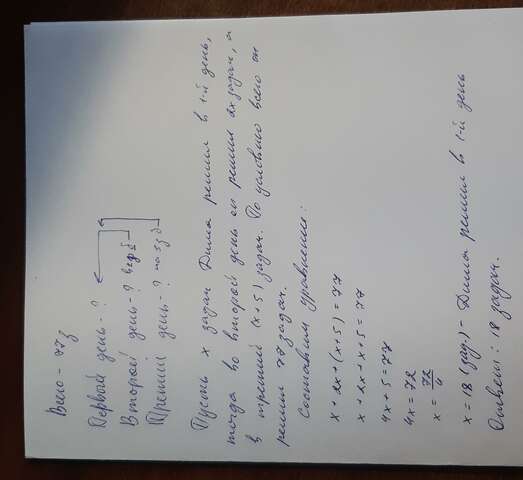 Всего - 77 з
Первый день - ?
Второй день - ? в 2р б
Третий день - ? на 5з б
Пусть x задач Дима решил в 1-й день,
тогда во второй день он решил 2x задач, а
в третий (x+5) задач. По условию всего он
решил 77 задач.
Составим уравнение:
x + 2x + (x + 5) = 77
x + 2x + x + 5 = 77
4x + 5 = 77
4x = 72
x = 72/4
x = 18 (зад.) - Дима решил в 1-й день
Ответ: 18 задач.